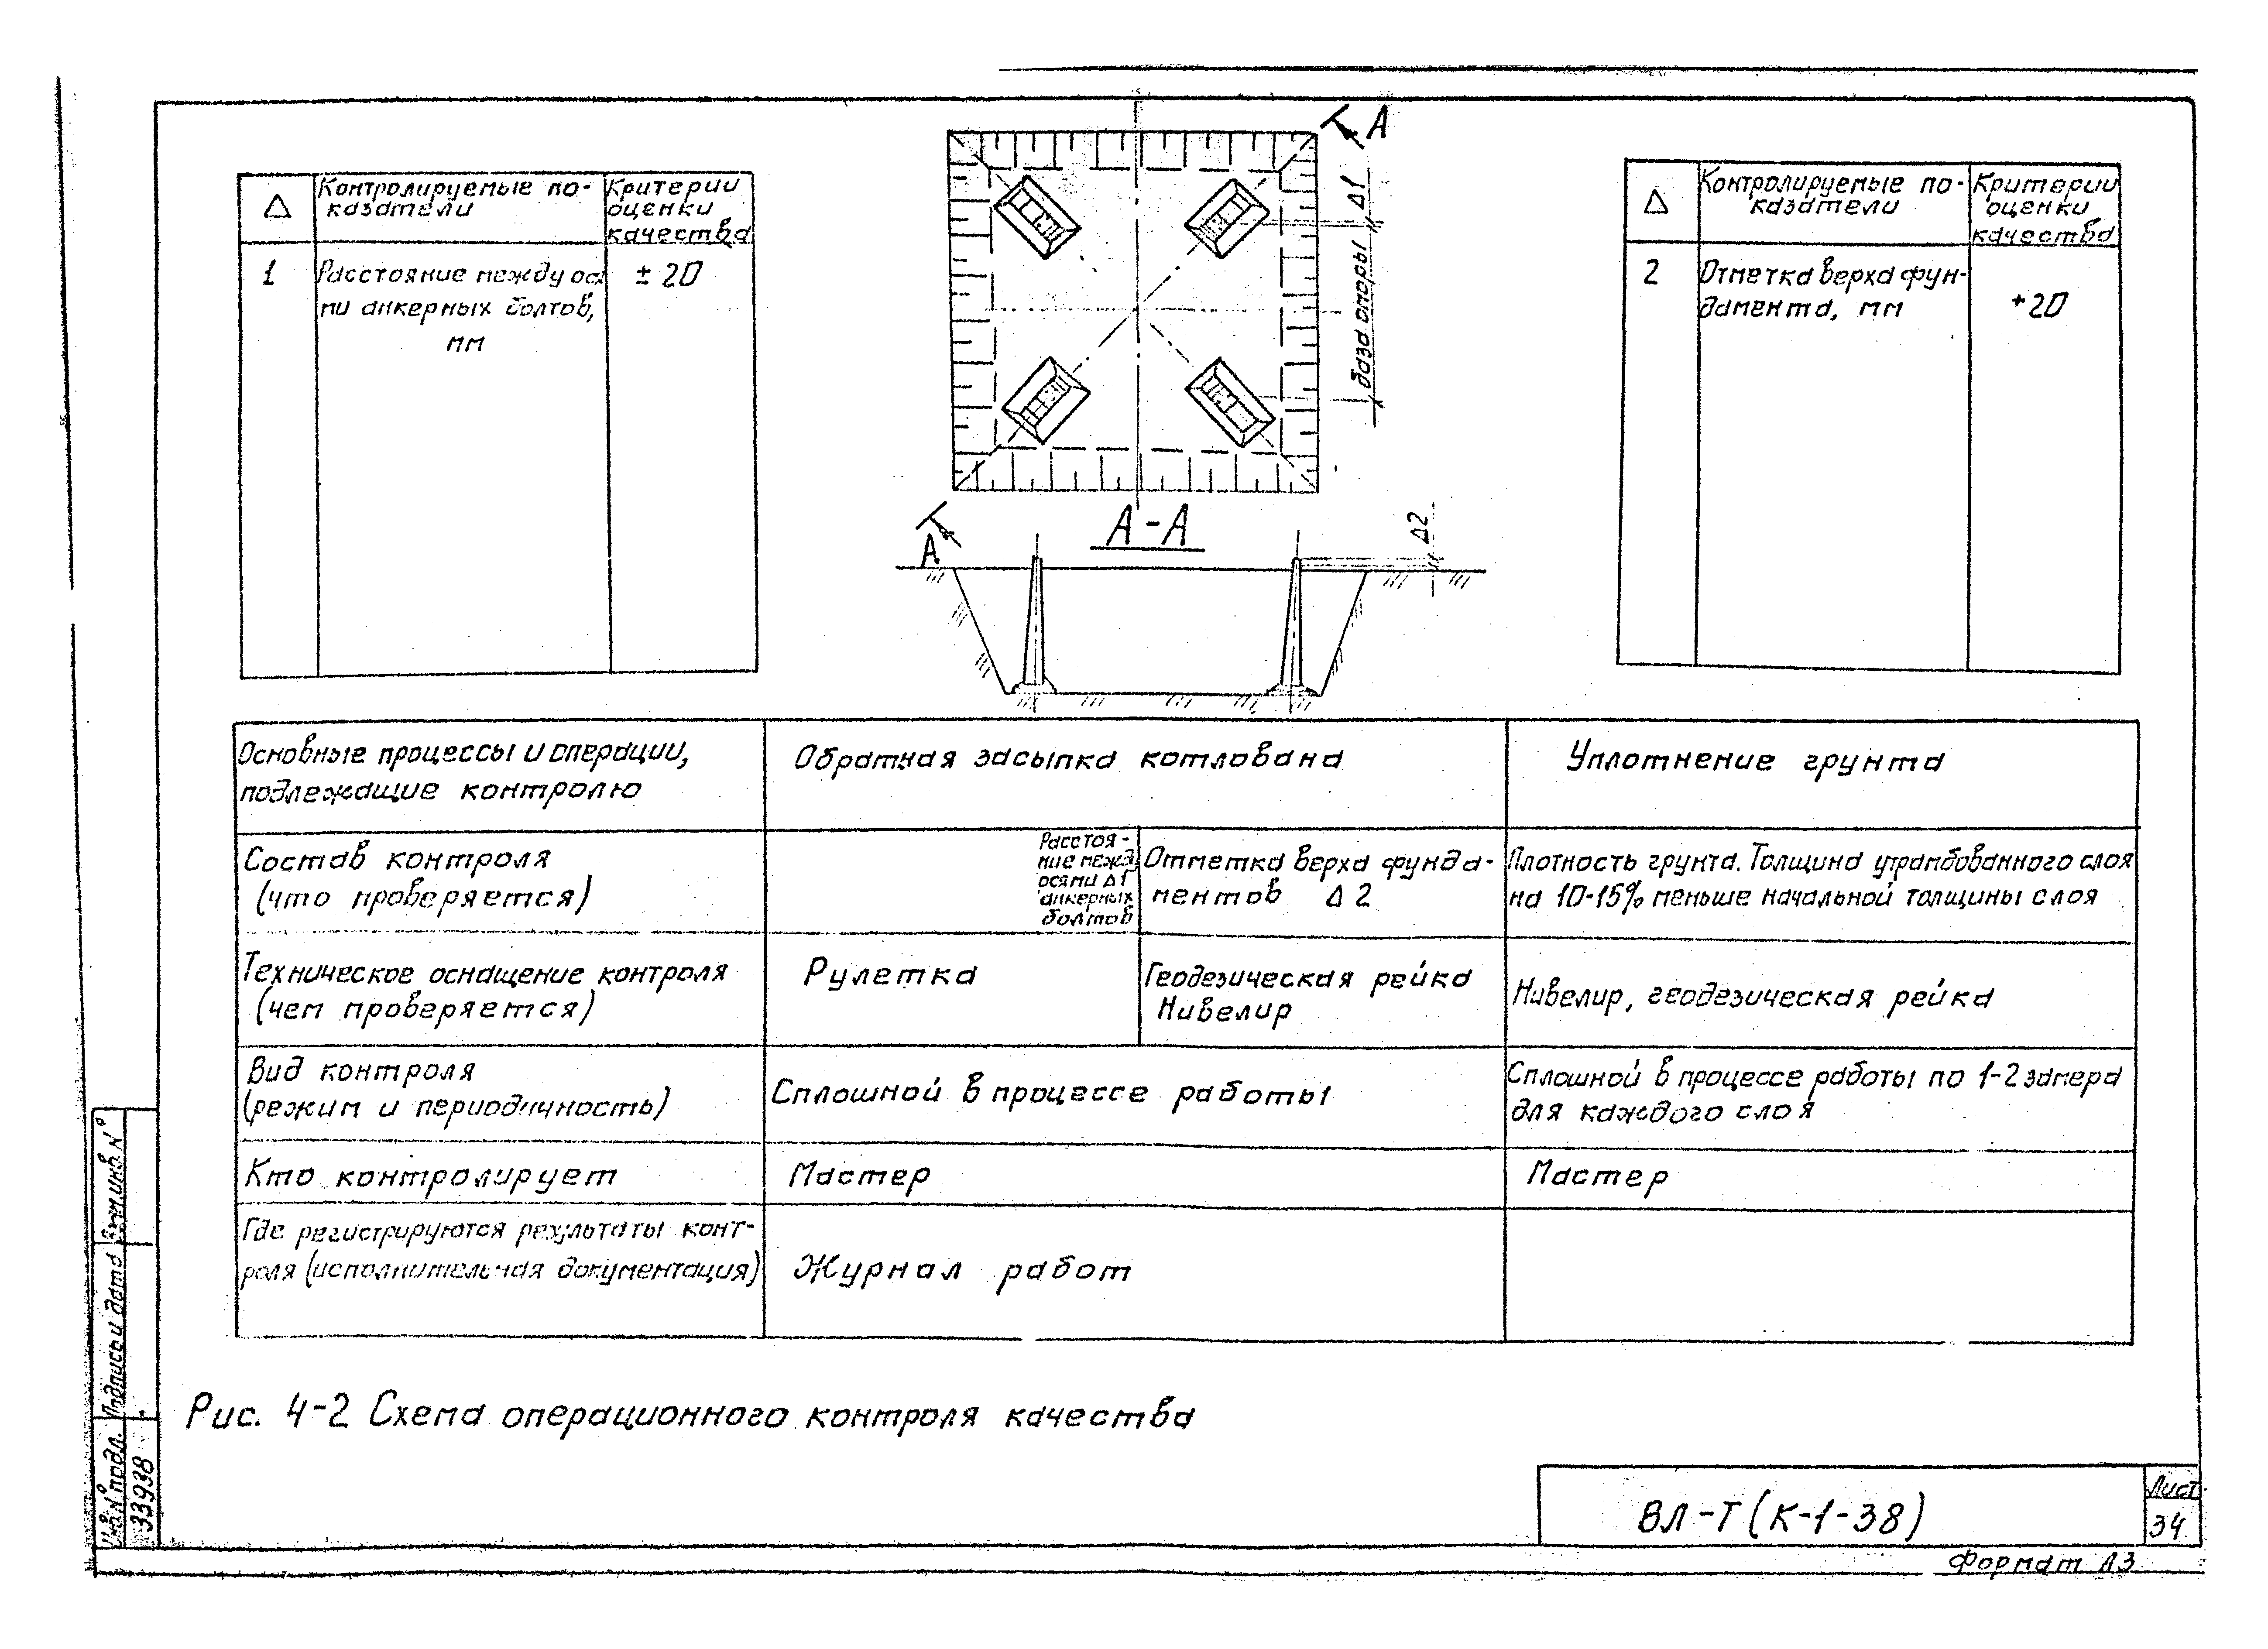 △
Контролируемые по-
казатели
Критерии
оценки
качества
1
Расстояние между ося
ми анкерных болтов,
мм
± 20
А
Δ1
база опоры
А
А-А
Δ2
△
Контролируемые по-
казатели
Критерии
оценки
качества
2
Отметка верха фун-
дамента, мм
+20
Основные процессы и операции,
подлежащие контролю
Обратная засыпка котлована
Уплотнение грунта
Состав контроля
(что проверяется)
Расстоя-
ние межд
осями Δ1
анкерных
болтов
Отметка верха фунда-
ментов Δ2
Плотность грунта. Толщина утрамбованного слоя
на 10-15% меньше начальной толщины слоя
Техническое оснащение контроля
(чем проверяется)
Рулетка
Геодезическая рейка
Нивелир
Нивелир, геодезическая рейка
Вид контроля
(режим и периодичность)
Сплошной в процессе работы
Сплошной в процессе работы по 1-2 замера
для каждого слоя
Кто контролирует
Мастер
Мастер
Где регистрируются результаты конт-
роля (исполнительная документация)
Журнал работ
Рис. 4-2 Схема операционного контроля качества
Взам.инв.N°
Подпись и дата
Инв.N° подл.
33938
ВЛ-Т(К-1-38)
Лист
34
Формат А3